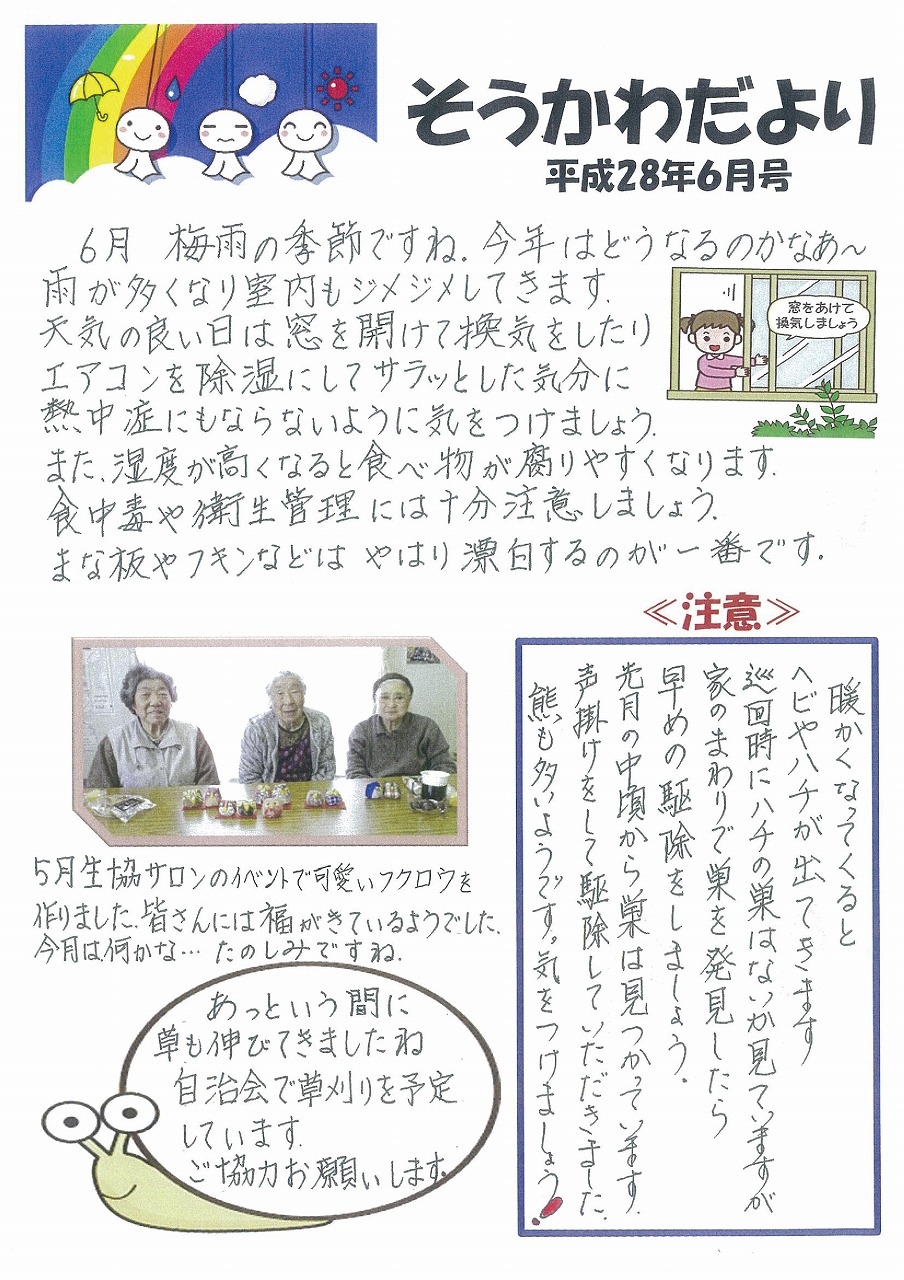 そうかわだより
平成28年6月号
6月 梅雨の季節ですね。今年はどうなるのかなあ〜
雨が多くなり室内もジメジメしてきます。
天気の良い日は窓を開けて換気をしたり
エアコンを除湿にしてサラッとした気分に
熱中症にもならないように気をつけましょう。
また、湿度が高くなると食べ物が腐りやすくなります。
食中毒や衛生管理には十分注意しましょう。
まな板やフキンなどは やはり漂白するのが一番です。
窓をあけて
換気しましょう
≪注意≫
暖かくなってくると
ヘビやハチが出てきます
巡回時にハチの巣はないか見ていますが
家のまわりで巣を発見したら
早めの駆除をしましょう。
先月の中頃から巣は見つかっています。
声掛けをして駆除していただきました。
熊も多いようです。気をつけましょう!
5月生協サロンのイベントで可愛いフクロウを
作りました。皆さんには福がきているようでした。
今月は何かな… たのしみですね。
あっという間に
草も伸びてきましたね
自治会で草刈りを予定
しています。
ご協力お願いします。